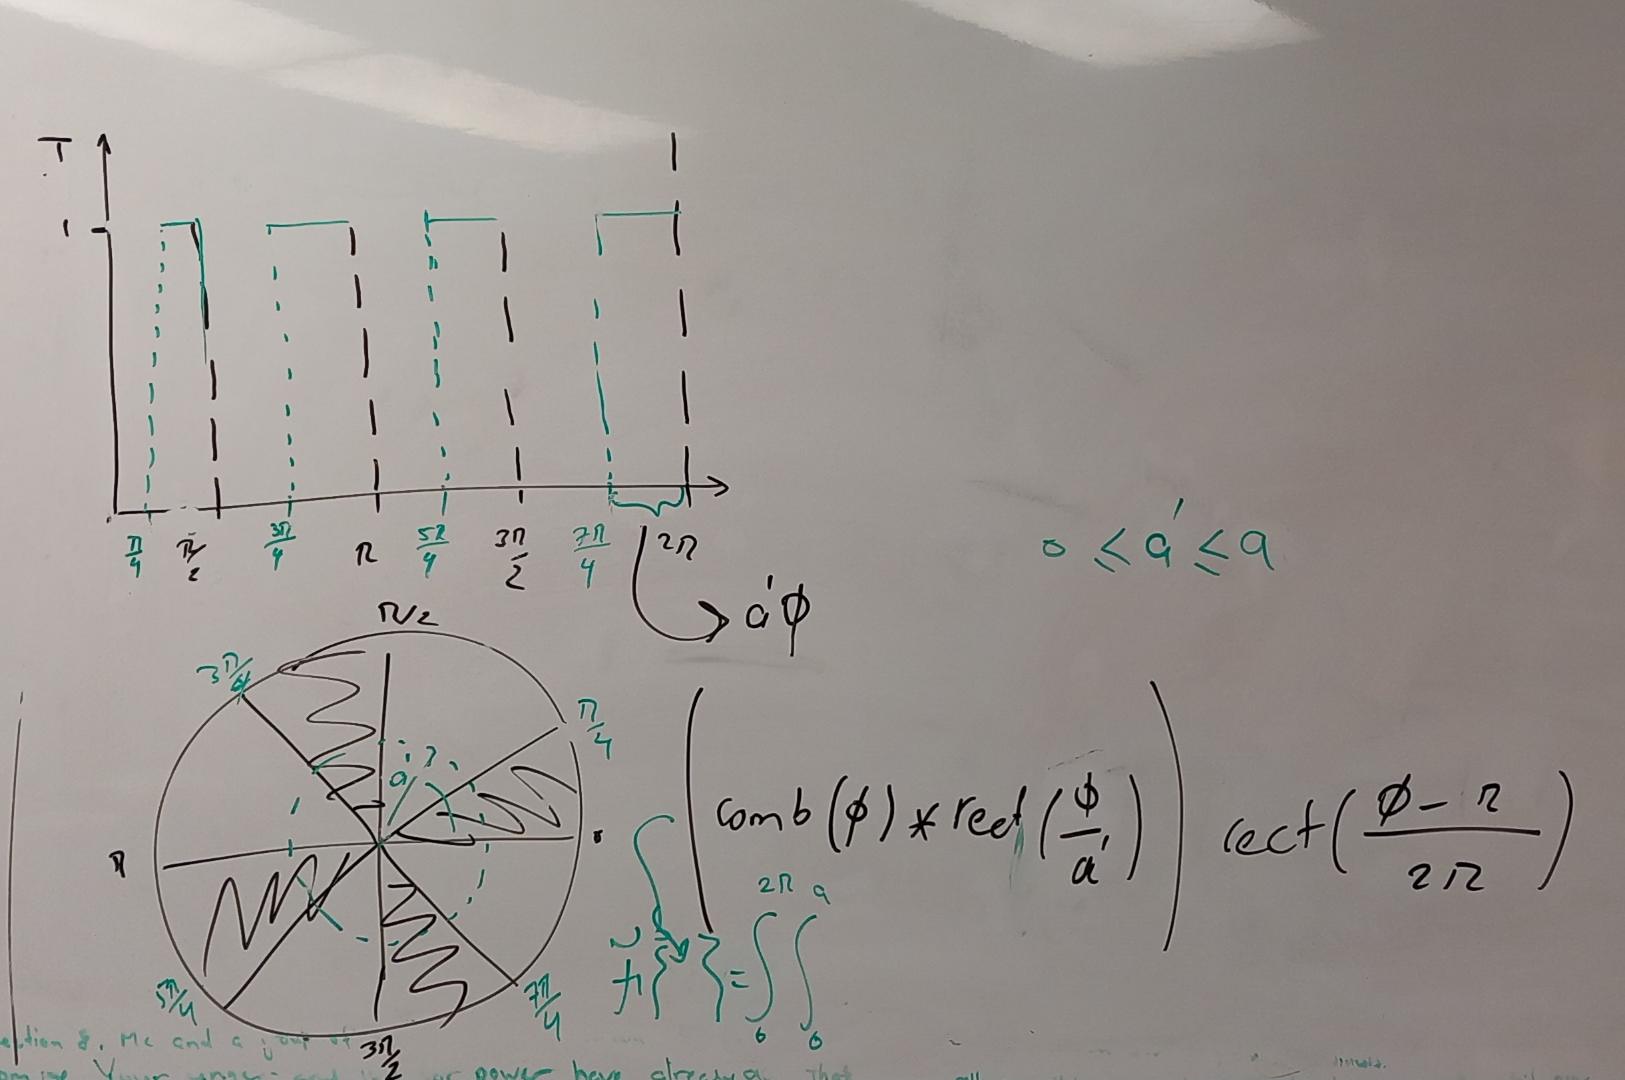 T
1
π/4 π/2 3π/4 π 5π/4 3π/2 7π/4 2π
a'ϕ
0 ≤ a' ≤ a
π/2
3π/4
π/4
a'
π
0
5π/4
7π/4
3π/2
(comb(ϕ) * rect(ϕ/a')) rect((ϕ - π)/2π)
{ } = ∫₀^2π ∫₀^a
Mc and a
power have already